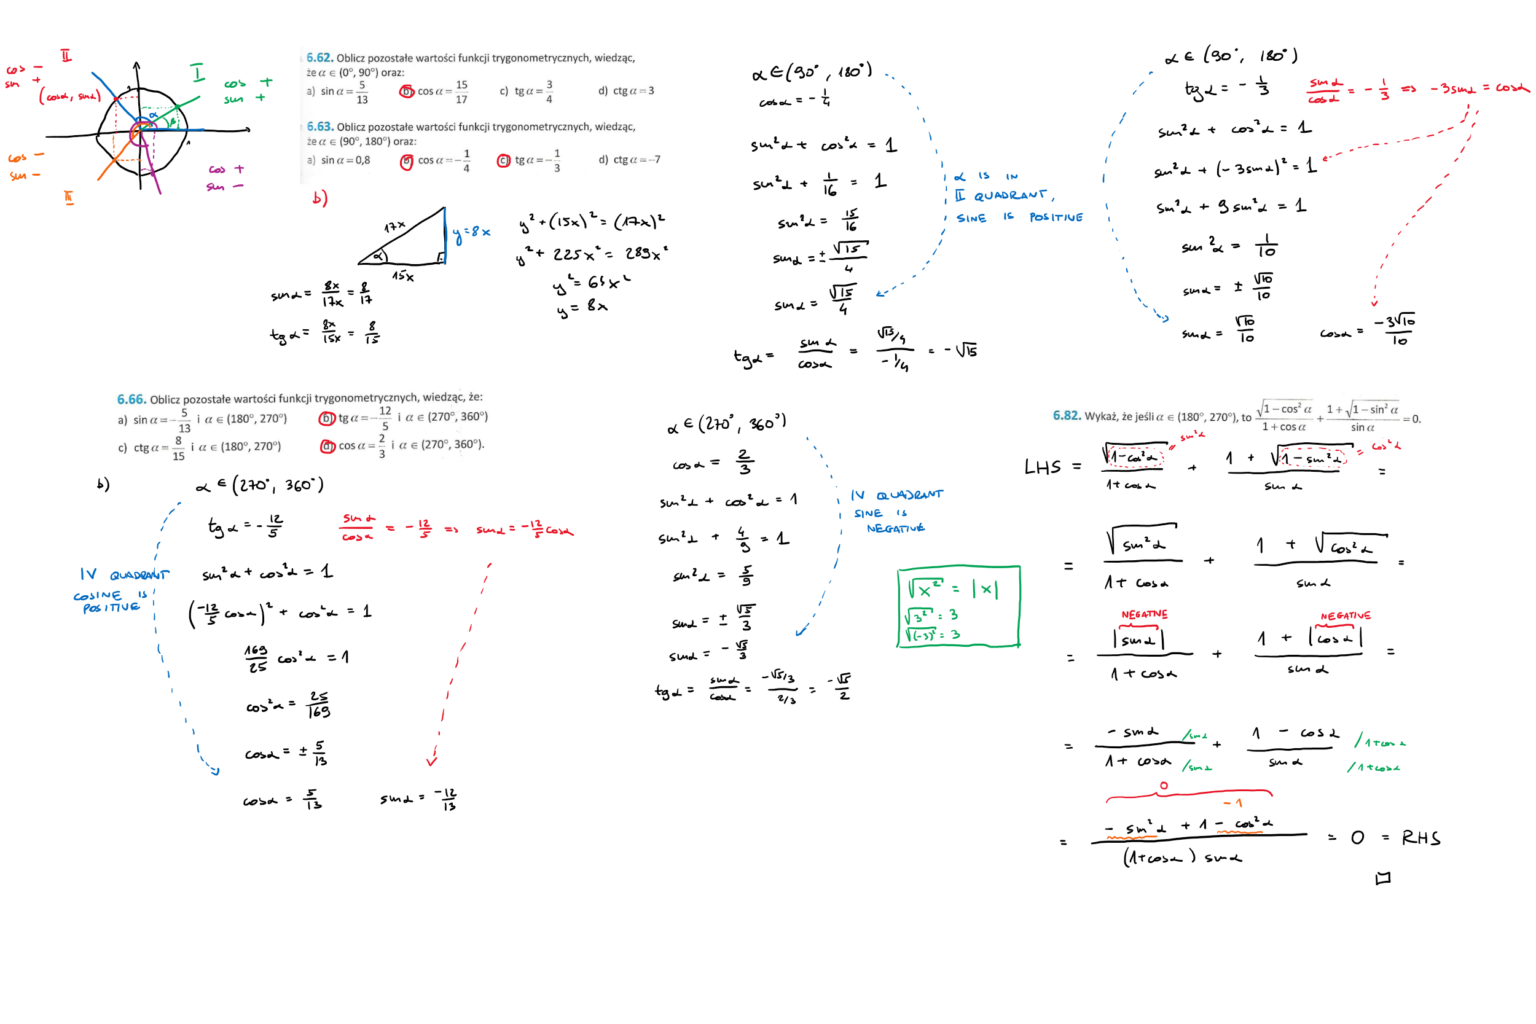 II
cos −
sin +
(cosα, sinα)
I
cos +
sin +
α
1
cos −
sin −
III
cos +
sin −
6.62. Oblicz pozostałe wartości funkcji trygonometrycznych, wiedząc,
że α ∈ (0°, 90°) oraz:
a) sin α = 5/13 b) cos α = 15/17 c) tg α = 3/4 d) ctg α = 3
6.63. Oblicz pozostałe wartości funkcji trygonometrycznych, wiedząc,
że α ∈ (90°, 180°) oraz:
a) sin α = 0,8 b) cos α = −1/4 c) tg α = −1/3 d) ctg α = −7
b)
17x
y = 8x
α
15x
sinα = 8x/17x = 8/17
tgα = 8x/15x = 8/15
y² + (15x)² = (17x)²
y² + 225x² = 289x²
y² = 64x²
y = 8x
α ∈ (90°, 180°)
cosα = −1/4
sin²α + cos²α = 1
sin²α + 1/16 = 1
sin²α = 15/16
sinα = ± √15/4
sinα = √15/4
tgα = sinα/cosα = (√15/4)/(−1/4) = −√15
α IS IN
II QUADRANT,
SINE IS POSITIVE
α ∈ (90°, 180°)
tgα = −1/3
sinα/cosα = −1/3 => −3sinα = cosα
sin²α + cos²α = 1
sin²α + (−3sinα)² = 1
sin²α + 9sin²α = 1
sin²α = 1/10
sinα = ± √10/10
sinα = √10/10 cosα = −3√10/10
6.66. Oblicz pozostałe wartości funkcji trygonometrycznych, wiedząc, że:
a) sin α = −5/13 i α ∈ (180°, 270°) b) tg α = −12/5 i α ∈ (270°, 360°)
c) ctg α = 8/15 i α ∈ (180°, 270°) d) cos α = 2/3 i α ∈ (270°, 360°).
b)
α ∈ (270°, 360°)
tgα = −12/5
sinα/cosα = −12/5 => sinα = −12/5 cosα
IV QUADRANT
COSINE IS
POSITIVE
sin²α + cos²α = 1
(−12/5 cosα)² + cos²α = 1
169/25 cos²α = 1
cos²α = 25/169
cosα = ± 5/13
cosα = 5/13 sinα = −12/13
α ∈ (270°, 360°)
cosα = 2/3
sin²α + cos²α = 1
sin²α + 4/9 = 1
sin²α = 5/9
sinα = ± √5/3
sinα = − √5/3
tgα = sinα/cosα = (−√5/3)/(2/3) = −√5/2
IV QUADRANT
SINE IS
NEGATIVE
√x² = |x|
√3² = 3
√(−3)² = 3
6.82. Wykaż, że jeśli α ∈ (180°, 270°), to √(1−cos² α)/(1+cos α) + (1+√(1−sin² α))/sin α = 0.
LHS = √(1−cos²α)/(1+cosα) + (1 + √(1−sin²α))/sinα =
= sin²α
= cos²α
= √(sin²α)/(1+cosα) + (1 + √(cos²α))/sinα =
NEGATIVE NEGATIVE
= |sinα|/(1+cosα) + (1 + |cosα|)/sinα =
= −sinα/(1+cosα) /sinα /sinα + (1 − cosα)/sinα /1+cosα /1+cosα
0
−1
= (−sin²α + 1 − cos²α)/((1+cosα) sinα) = 0 = RHS